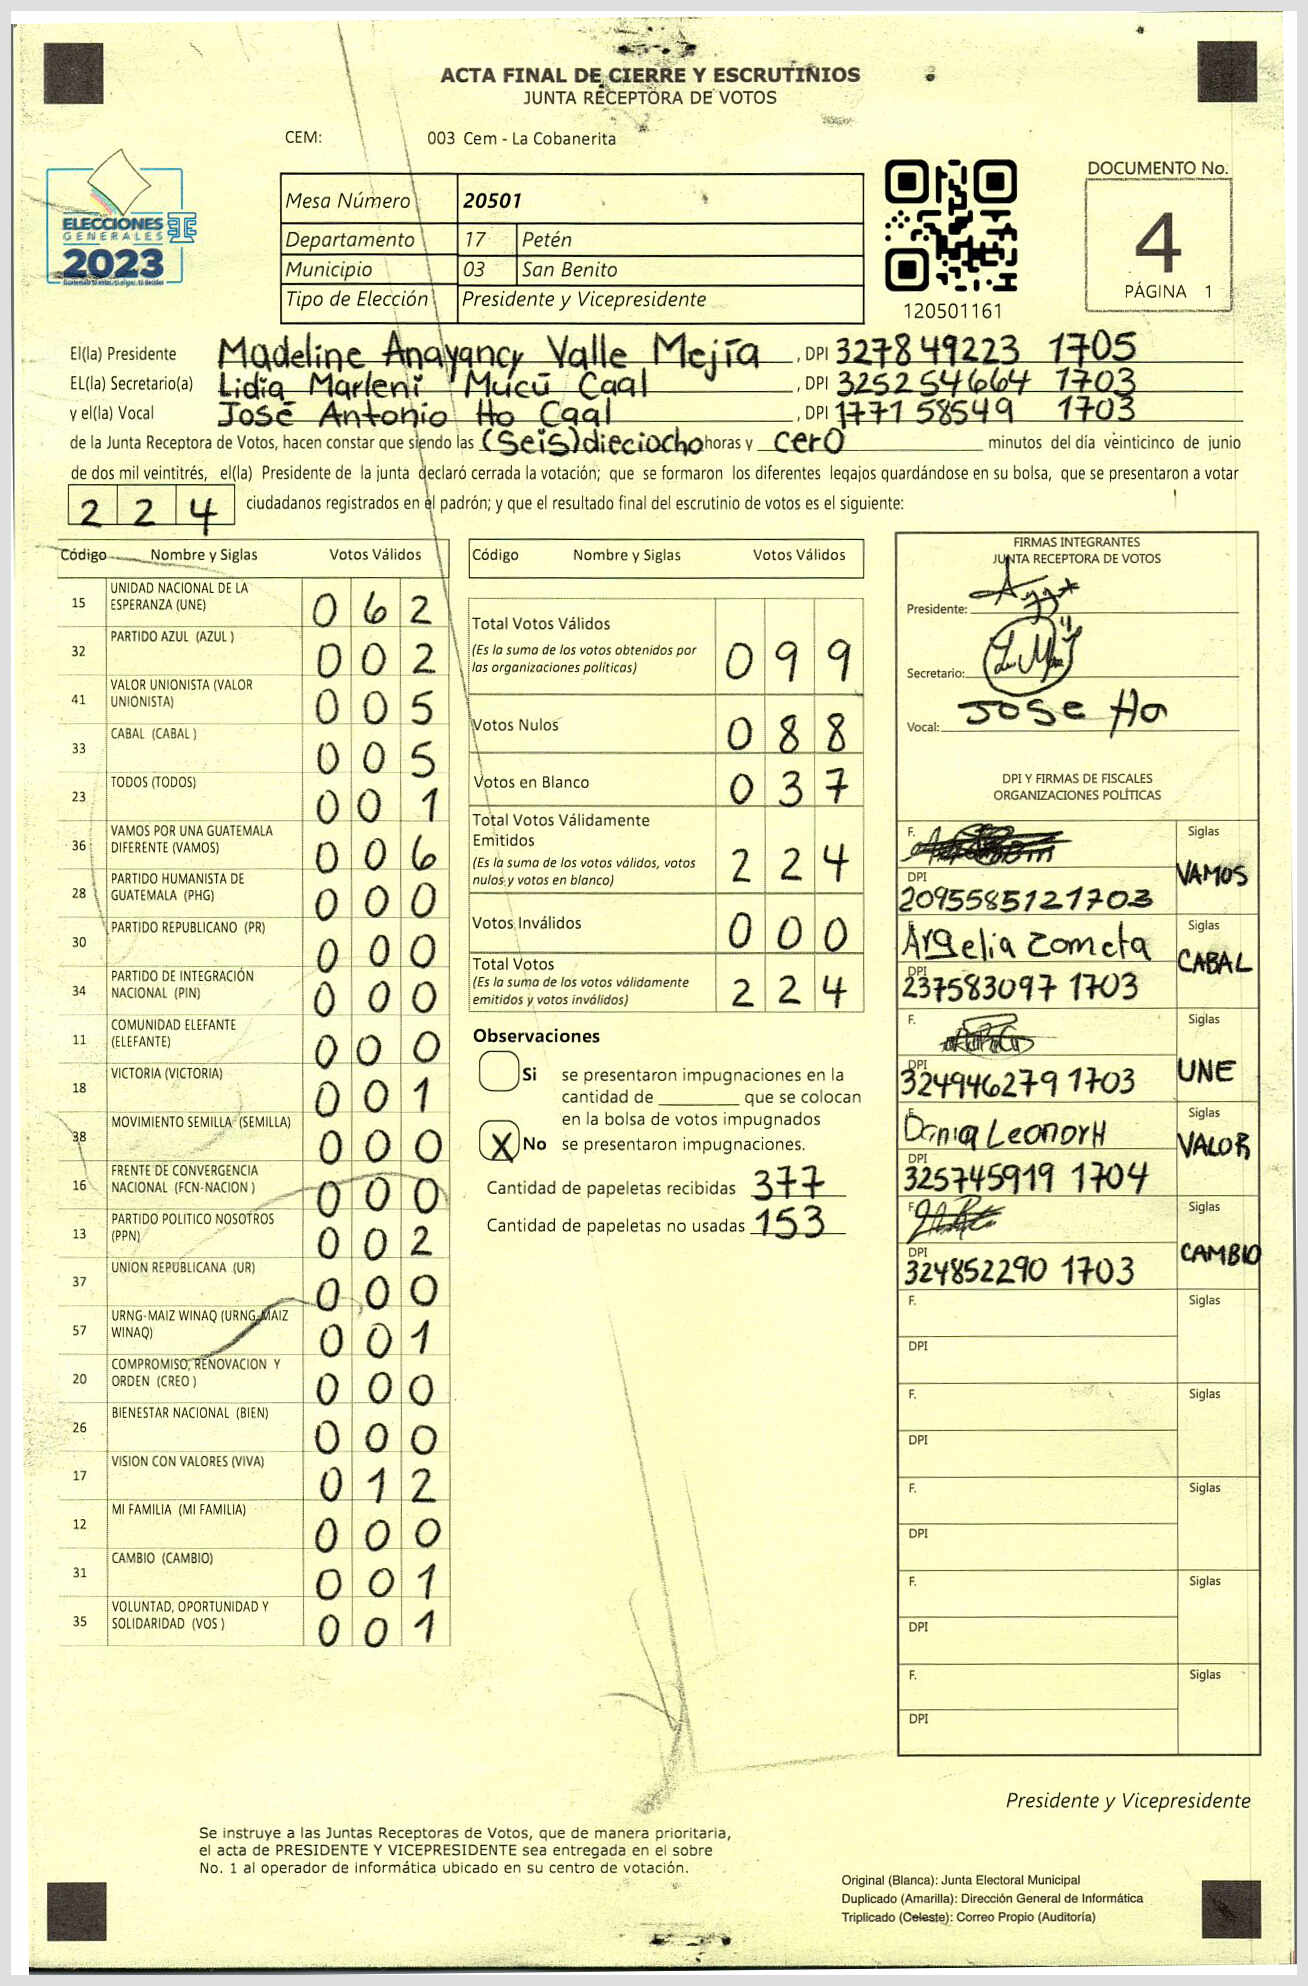 ACTA FINAL DE CIERRE Y ESCRUTINIOS
JUNTA RECEPTORA DE VOTOS
CEM: 003 Cem - La Cobanerita
ELECCIONES
GENERALES
2023
Mesa Número 20501
Departamento 17 Petén
Municipio 03 San Benito
Tipo de Elección Presidente y Vicepresidente
120501161
DOCUMENTO No.
4
PÁGINA 1
El(la) Presidente Madeline Anayancy Valle Mejía , DPI 327849223 1705
EL(la) Secretario(a) Lidia Marleni Mucú Caal , DPI 325254664 1703
y el(la) Vocal José Antonio Ho Caal , DPI 1771 58549 1703
de la Junta Receptora de Votos, hacen constar que siendo las (Seis)dieciocho horas y cero minutos del día veinticinco de junio
de dos mil veintitrés, el(la) Presidente de la junta declaró cerrada la votación; que se formaron los diferentes legajos guardándose en su bolsa, que se presentaron a votar
2 2 4 ciudadanos registrados en el padrón; y que el resultado final del escrutinio de votos es el siguiente:
Código Nombre y Siglas Votos Válidos
15 UNIDAD NACIONAL DE LA ESPERANZA (UNE) 0 6 2
32 PARTIDO AZUL (AZUL ) 0 0 2
41 VALOR UNIONISTA (VALOR UNIONISTA) 0 0 5
33 CABAL (CABAL ) 0 0 5
23 TODOS (TODOS) 0 0 1
36 VAMOS POR UNA GUATEMALA DIFERENTE (VAMOS) 0 0 6
28 PARTIDO HUMANISTA DE GUATEMALA (PHG) 0 0 0
30 PARTIDO REPUBLICANO (PR) 0 0 0
34 PARTIDO DE INTEGRACIÓN NACIONAL (PIN) 0 0 0
11 COMUNIDAD ELEFANTE (ELEFANTE) 0 0 0
18 VICTORIA (VICTORIA) 0 0 1
38 MOVIMIENTO SEMILLA (SEMILLA) 0 0 0
16 FRENTE DE CONVERGENCIA NACIONAL (FCN-NACION ) 0 0 0
13 PARTIDO POLITICO NOSOTROS (PPN) 0 0 2
37 UNION REPUBLICANA (UR) 0 0 0
57 URNG-MAIZ WINAQ (URNG-MAIZ WINAQ) 0 0 1
20 COMPROMISO, RENOVACION Y ORDEN (CREO ) 0 0 0
26 BIENESTAR NACIONAL (BIEN) 0 0 0
17 VISION CON VALORES (VIVA) 0 1 2
12 MI FAMILIA (MI FAMILIA) 0 0 0
31 CAMBIO (CAMBIO) 0 0 1
35 VOLUNTAD, OPORTUNIDAD Y SOLIDARIDAD (VOS ) 0 0 1
Código Nombre y Siglas Votos Válidos
Total Votos Válidos
(Es la suma de los votos obtenidos por
las organizaciones políticas) 0 9 9
Votos Nulos 0 8 8
Votos en Blanco 0 3 7
Total Votos Válidamente
Emitidos
(Es la suma de los votos válidos, votos
nulos y votos en blanco) 2 2 4
Votos Inválidos 0 0 0
Total Votos
(Es la suma de los votos válidamente
emitidos y votos inválidos) 2 2 4
Observaciones
Si se presentaron impugnaciones en la
cantidad de ________ que se colocan
en la bolsa de votos impugnados
X No se presentaron impugnaciones.
Cantidad de papeletas recibidas 377
Cantidad de papeletas no usadas 153
FIRMAS INTEGRANTES
JUNTA RECEPTORA DE VOTOS
Presidente:
Secretario:
Vocal: Jose Ho
DPI Y FIRMAS DE FISCALES
ORGANIZACIONES POLÍTICAS
F. Siglas VAMOS
DPI 209558512 1703
F. Argelia Zometa Siglas CABAL
DPI 237583097 1703
F. Siglas UNE
DPI 324946279 1703
F. Dania Leonor H Siglas VALOR
DPI 325745919 1704
F. Siglas CAMBIO
DPI 324852290 1703
F. Siglas
DPI
F. Siglas
DPI
F. Siglas
DPI
F. Siglas
DPI
F. Siglas
DPI
Presidente y Vicepresidente
Se instruye a las Juntas Receptoras de Votos, que de manera prioritaria,
el acta de PRESIDENTE Y VICEPRESIDENTE sea entregada en el sobre
No. 1 al operador de informática ubicado en su centro de votación.
Original (Blanca): Junta Electoral Municipal
Duplicado (Amarilla): Dirección General de Informática
Triplicado (Celeste): Correo Propio (Auditoría)